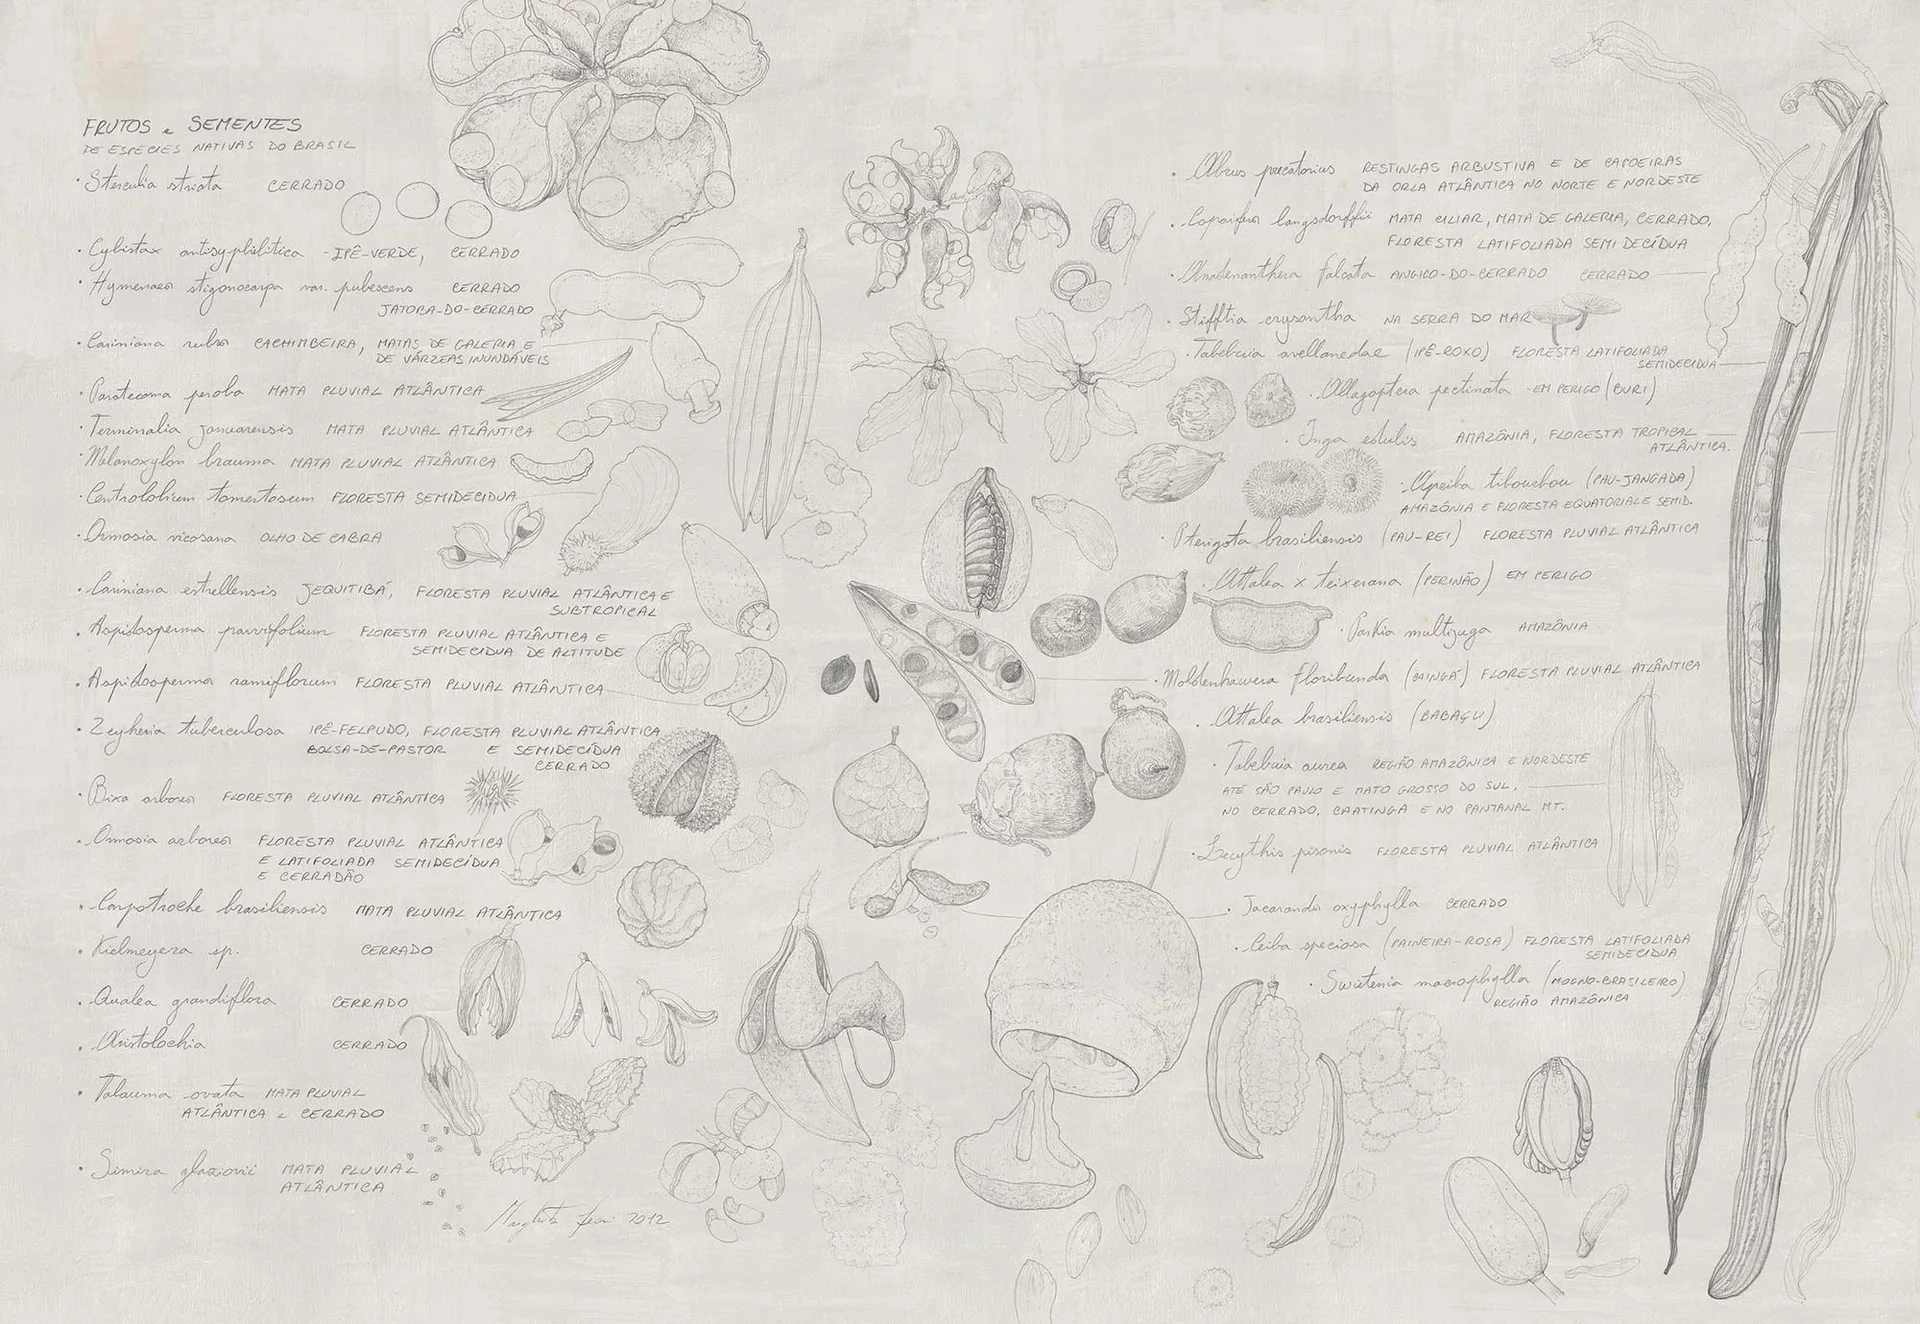 FRUTOS e SEMENTES
DE ESPECIES NATIVAS DO BRASIL
· Sterculia striata CERRADO
· Cybistax antisyphilitica - IPÊ-VERDE, CERRADO
· Hymenaea stigonocarpa var. pubescens CERRADO
JATOBA-DO-CERRADO
· Cariniana rubra CACHIMBEIRA, MATAS DE GALERIA E
DE VÁRZEAS INUNDÁVEIS
· Paratecoma peroba MATA PLUVIAL ATLÂNTICA
· Terminalia januarensis MATA PLUVIAL ATLÂNTICA
· Melanoxylon brauma MATA PLUVIAL ATLÂNTICA
· Centrolobium tomentosum FLORESTA SEMIDECIDUA
· Ormosia nicosana OLHO DE CABRA
· Cariniana estrellensis JEQUITIBÁ, FLORESTA PLUVIAL ATLÂNTICA E
SUBTROPICAL
· Aspidosperma parvifolium FLORESTA PLUVIAL ATLÂNTICA E
SEMIDECIDUA DE ALTITUDE
· Aspidosperma ramiflorum FLORESTA PLUVIAL ATLÂNTICA
· Zeyheria tuberculosa IPÊ-FELPUDO, FLORESTA PLUVIAL ATLÂNTICA
BOLSA-DE-PASTOR E SEMIDECÍDUA
CERRADO
· Bixa arborea FLORESTA PLUVIAL ATLÂNTICA
· Ormosia arborea FLORESTA PLUVIAL ATLÂNTICA
E LATIFOLIADA SEMIDECÍDUA
E CERRADÃO
· Carpotroche brasiliensis MATA PLUVIAL ATLÂNTICA
· Kielmeyera sp. CERRADO
· Qualea grandiflora CERRADO
· Aristolochia CERRADO
· Talauma ovata MATA PLUVIAL
ATLÂNTICA e CERRADO
· Simira glaziovii MATA PLUVIAL
ATLÂNTICA
2012
· Abrus precatorius RESTINGAS ARBUSTIVA E DE CAPOEIRAS
DA ORLA ATLÂNTICA NO NORTE E NORDESTE
· Copaifera langsdorffii MATA CILIAR, MATA DE GALERIA, CERRADO,
FLORESTA LATIFOLIADA SEMIDECÍDUA
· Anadenanthera falcata ANGICO-DO-CERRADO CERRADO
· Stifftia crysantha NA SERRA DO MAR
· Tabebuia avellanedae (IPÊ-ROXO) FLORESTA LATIFOLIADA
SEMIDECIDUA
· Allagoptera pectinata - EM PERIGO (BURI)
· Inga edulis AMAZÔNIA, FLORESTA TROPICAL
ATLÂNTICA.
· Apeiba tibourbou (PAU-JANGADA)
AMAZÔNIA E FLORESTA EQUATORIAL E SEMID.
· Pterigota brasiliensis (PAU-REI) FLORESTA PLUVIAL ATLÂNTICA
· Attalea x teixerana (PERINÃO) EM PERIGO
· Parkia multijuga AMAZÔNIA
· Moldenhawera floribunda FLORESTA PLUVIAL ATLÂNTICA
· Attalea brasiliensis (BABAÇU)
· Tabebuia aurea REGIÃO AMAZÔNICA E NORDESTE
ATÉ SÃO PAULO E MATO GROSSO DO SUL,
NO CERRADO, CAATINGA E NO PANTANAL MT.
· Lecythis pisonis FLORESTA PLUVIAL ATLÂNTICA
· Jacaranda oxyphylla CERRADO
· Ceiba speciosa (PAINEIRA-ROSA) FLORESTA LATIFOLIADA
SEMIDECIDUA
· Swietenia macrophylla (MOGNO-BRASILEIRO)
REGIÃO AMAZÔNICA